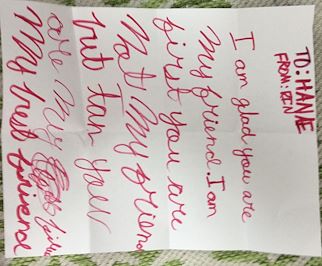 TO: HANAE
FROM: RIN
I am glad you are
My friend. I am
first you are
Not My friend
but I am your
are My
My best friend